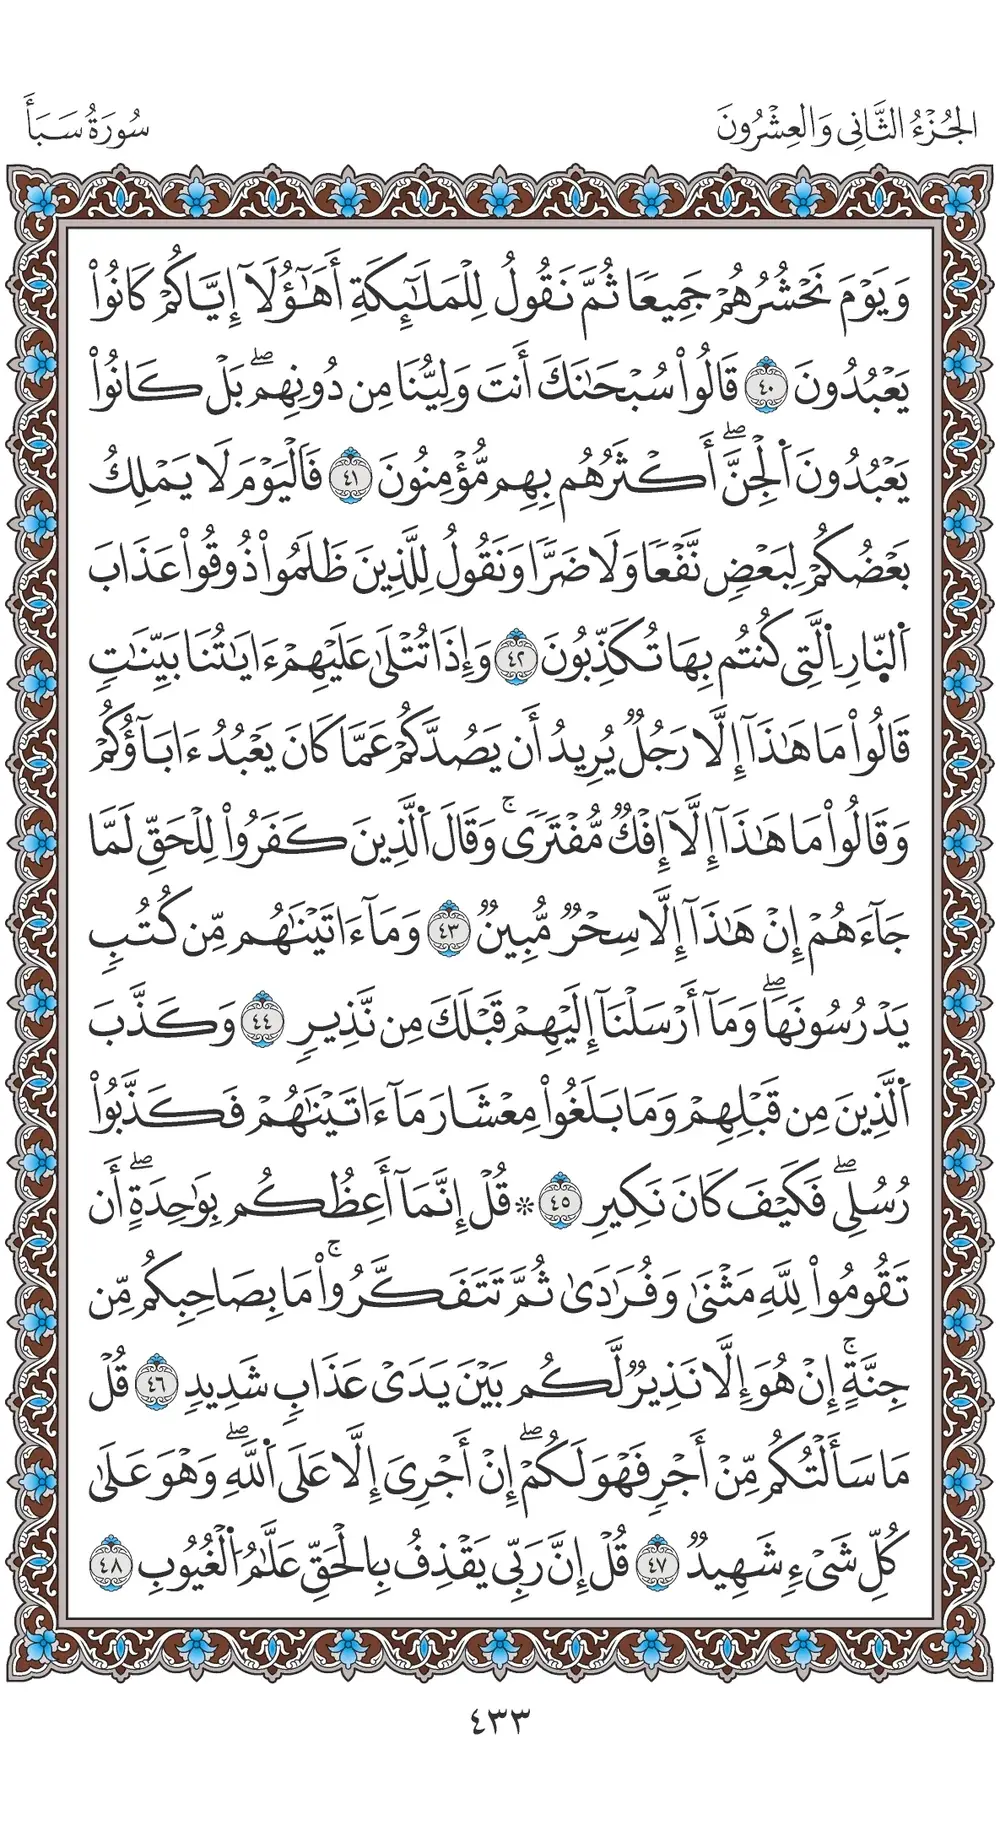 الجُزْءُ الثَّانِي وَالعِشْرُونَ
سُورَةُ سَبَأ
وَيَوْمَ نَحْشُرُهُمْ جَمِيعًا ثُمَّ نَقُولُ لِلْمَلَٰٓئِكَةِ أَهَٰٓؤُلَآ إِيَّاكُمْ كَانُوا۟
يَعْبُدُونَ ٤٠ قَالُوا۟ سُبْحَٰنَكَ أَنتَ وَلِيُّنَا مِن دُونِهِمۖ بَلْ كَانُوا۟
يَعْبُدُونَ ٱلْجِنَّۖ أَكْثَرُهُم بِهِم مُّؤْمِنُونَ ٤١ فَٱلْيَوْمَ لَا يَمْلِكُ
بَعْضُكُمْ لِبَعْضٍ نَّفْعًا وَلَا ضَرًّا وَنَقُولُ لِلَّذِينَ ظَلَمُوا۟ ذُوقُوا۟ عَذَابَ
ٱلنَّارِ ٱلَّتِي كُنتُم بِهَا تُكَذِّبُونَ ٤٢ وَإِذَا تُتْلَىٰ عَلَيْهِمْ ءَايَٰتُنَا بَيِّنَٰتٍ
قَالُوا۟ مَا هَٰذَآ إِلَّا رَجُلٌ يُرِيدُ أَن يَصُدَّكُمْ عَمَّا كَانَ يَعْبُدُ ءَابَآؤُكُمْ
وَقَالُوا۟ مَا هَٰذَآ إِلَّآ إِفْكٌ مُّفْتَرًىۚ وَقَالَ ٱلَّذِينَ كَفَرُوا۟ لِلْحَقِّ لَمَّا
جَآءَهُمْ إِنْ هَٰذَآ إِلَّا سِحْرٌ مُّبِينٌ ٤٣ وَمَآ ءَاتَيْنَٰهُم مِّن كُتُبٍ
يَدْرُسُونَهَاۖ وَمَآ أَرْسَلْنَآ إِلَيْهِمْ قَبْلَكَ مِن نَّذِيرٍ ٤٤ وَكَذَّبَ
ٱلَّذِينَ مِن قَبْلِهِمْ وَمَا بَلَغُوا۟ مِعْشَارَ مَآ ءَاتَيْنَٰهُمْ فَكَذَّبُوا۟
رُسُلِيۖ فَكَيْفَ كَانَ نَكِيرِ ٤٥ ۞ قُلْ إِنَّمَآ أَعِظُكُم بِوَٰحِدَةٍۖ أَن
تَقُومُوا۟ لِلَّهِ مَثْنَىٰ وَفُرَٰدَىٰ ثُمَّ تَتَفَكَّرُوا۟ۚ مَا بِصَاحِبِكُم مِّن
جِنَّةٍۚ إِنْ هُوَ إِلَّا نَذِيرٌ لَّكُم بَيْنَ يَدَىْ عَذَابٍ شَدِيدٍ ٤٦ قُلْ
مَا سَأَلْتُكُم مِّنْ أَجْرٍ فَهُوَ لَكُمْۖ إِنْ أَجْرِىَ إِلَّا عَلَى ٱللَّهِۖ وَهُوَ عَلَىٰ
كُلِّ شَىْءٍ شَهِيدٌ ٤٧ قُلْ إِنَّ رَبِّي يَقْذِفُ بِٱلْحَقِّ عَلَّٰمُ ٱلْغُيُوبِ ٤٨
٤٣٣